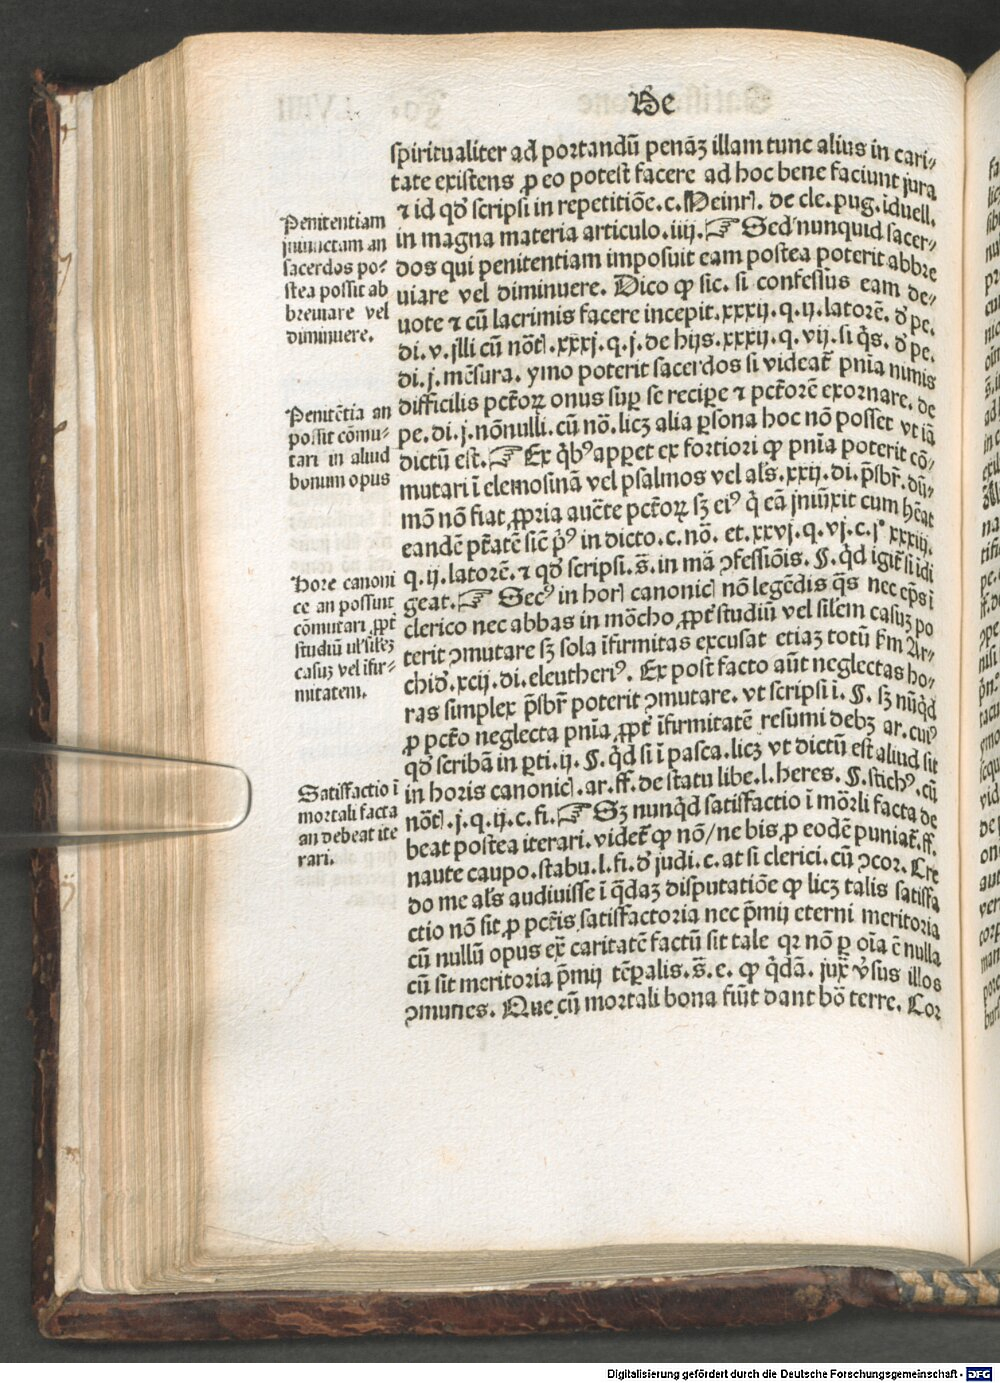 De
spiritualiter ad portandū penāꝫ illam tunc alius in cari⸗
tate existens ꝓ eo potest facere ad hoc bene faciunt jura
⁊ id qđ scripsi in repetitiōe. c. Heinrꝭ. de cle. pug. ī duell.
in magna materia articulo. iiij. ☞ Sed nunquid sacer⸗
dos qui penitentiam imposuit eam postea poterit abbre
uiare vel diminuere. Dico ꝙ sic. si confessus eam de⸗
uote ⁊ cū lacrimis facere incepit. xxxij. q. ij. latorē. đ pe.
di. v. jlli cū nōtꝭ. xxxj. q. j. de hijs. xxxij. q. vij. si q̄s. đ pe.
di. j. mēsura. ymo poterit sacerdos si videat̄ pnīa nimis
difficilis pct̄oꝝ onus suꝑ se recipe ⁊ pct̄orē exornare. de
pe. di. j. nōnulli. cū nō. licꝫ alia ꝑsona hoc nō posset vt iā
dictū est. ☞ Ex q̄bꝰ apꝑet ex fortiori ꝙ pnīa poterit cō⸗
mutari ī elemosinā vel psalmos vel al̄s. xxij. di. p̄sbr̄. dū⸗
mō nō fiat ꝓpria auc̄te pct̄oꝝ sꝫ eiꝰ q̄ eā jniūxit cum hēat
eandē pt̄atē sic̄ p̄ꝰ in dicto. c. nō. et. xxvj. q. vj. c. jº xxxiij.
q. ij. latorē. ⁊ qđ scripsi. s̄. in mā ꝯfessiōis. §. q̄d igit̄ si īdi
geat. ☞ Secꝰ in horꝭ canonicꝭ nō legēdis q̄s nec ep̄s ī
clerico nec abbas in mōcho ꝓpt̄ studiū vel silēm casuꝫ po
terit ꝯmutare sꝫ sola īfirmitas excusat etiaꝫ totū fm̄ Ar⸗
chiđ. xcij. di. eleutheriꝰ. Ex post facto aūt neglectas ho⸗
ras simplex p̄sbr̄ poterit ꝯmutare. vt scripsi ī. §. sꝫ nūq̄d
ꝓ pct̄o neglecta pnīa ꝓpt̄ īfirmitatē resumi debꝫ ar. cuiꝰ
qđ scribā in ꝑti. ij. §. q̄d si ī pasca. licꝫ vt dictū est aliud sit
in horis canonicꝭ. ar. ff. de statu libe. l. heres. §. stichꝰ. cū
nōtꝭ. j. q. ij. c. fi. ☞ Sꝫ nunq̄d satisfactio ī mōrli facta de
beat postea iterari. videt̄ ꝙ nō/ne bis ꝓ eodē puniat̄. ff.
naute caupo. stabu. l. fi. đ judi. c. at si clerici. cū ꝯcor. Cre
do me al̄s audiuisse ī q̄daꝫ disputatiōe ꝙ licꝫ talis satisfa
ctio nō sit ꝓ pct̄is satisfactoria nec p̄mij eterni meritoria
cū nullū opus ex̄ caritatē factū sit tale qꝛ nō ꝑ oīa ē nulla
cū sit meritoria p̄mij tēꝑalis. s̄. e. ꝙ q̄dā. jux̄ ꝟsus illos
ꝯmunes. Que cū mortali bona fiūt dant bō terre. Cor
Penitentiam
iniunctam an
sacerdos po⸗
stea possit ab
breuiare vel
diminuere.
Penitētia an
possit cōmu⸗
tari in aliud
bonum opus
Hore canoni
ce an possunt
cōmutari ꝓpt̄
studiū ul̓ silēꝫ
casuꝫ vel īfir⸗
mitatem.
Satisfactio ī
mortali facta
an debeat ite
rari.
Digitalisierung gefördert durch die Deutsche Forschungsgemeinschaft - DFG